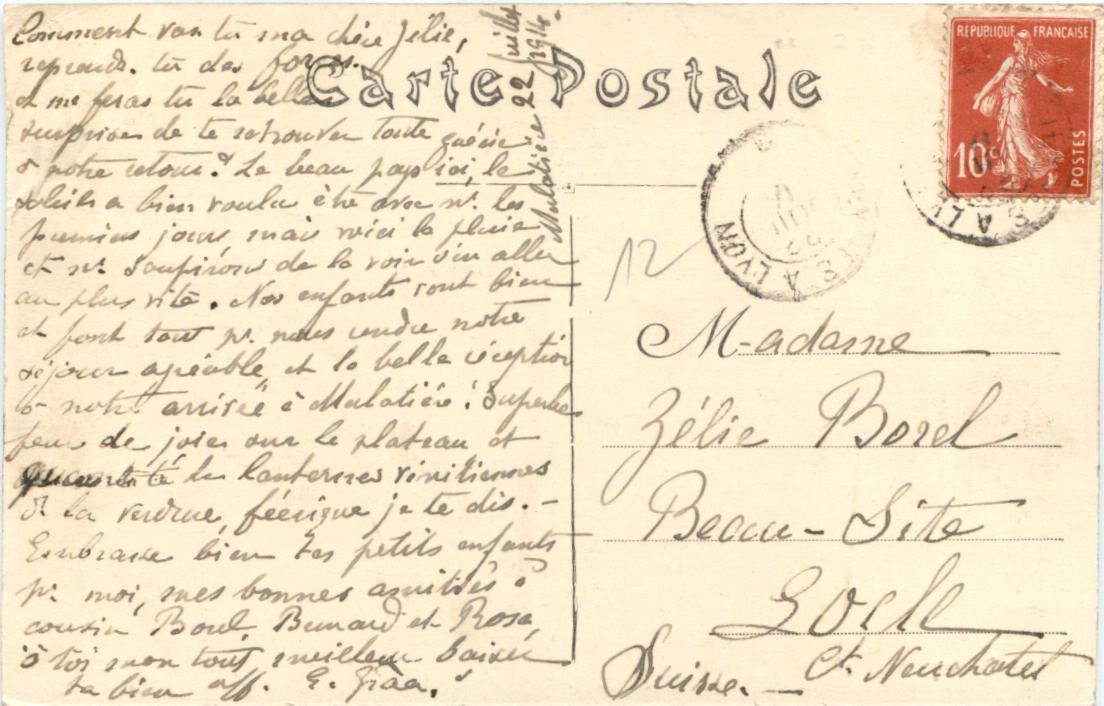 Comment vas tu ma chère Zélie,
reprends-tu des forces
et me feras tu la belle
surprise de te retrouver toute guérie
à notre retour? Le beau pays ici, le
soleil a bien voulu être avec ns. les
premiers jours, mais voici la pluie
et ns. soupirons de la voir s'en aller
au plus vite. Nos enfants vont bien
et font tout pr. nous rendre notre
séjour agréable, et la belle réception
à notre arrivée à Mulatière! Superbe
feux de joies sur le plateau et
quantité de lanternes vénitiennes
ds la verdure, féérique je te dis. -
Embrasse bien tes petits enfants
pr. moi, mes bonnes amitiés à
cousin Borel, Bernard et Rosa,
à toi mon tout meilleur baiser
ta bien aff. E.
Mulatière 22 juillet
1914.
Carte Postale
REPUBLIQUE FRANÇAISE
10c
POSTES
A LYON
12
Madame
Zélie Borel
Beau-Site
Locle
Ct. Neuchatel
Suisse. -